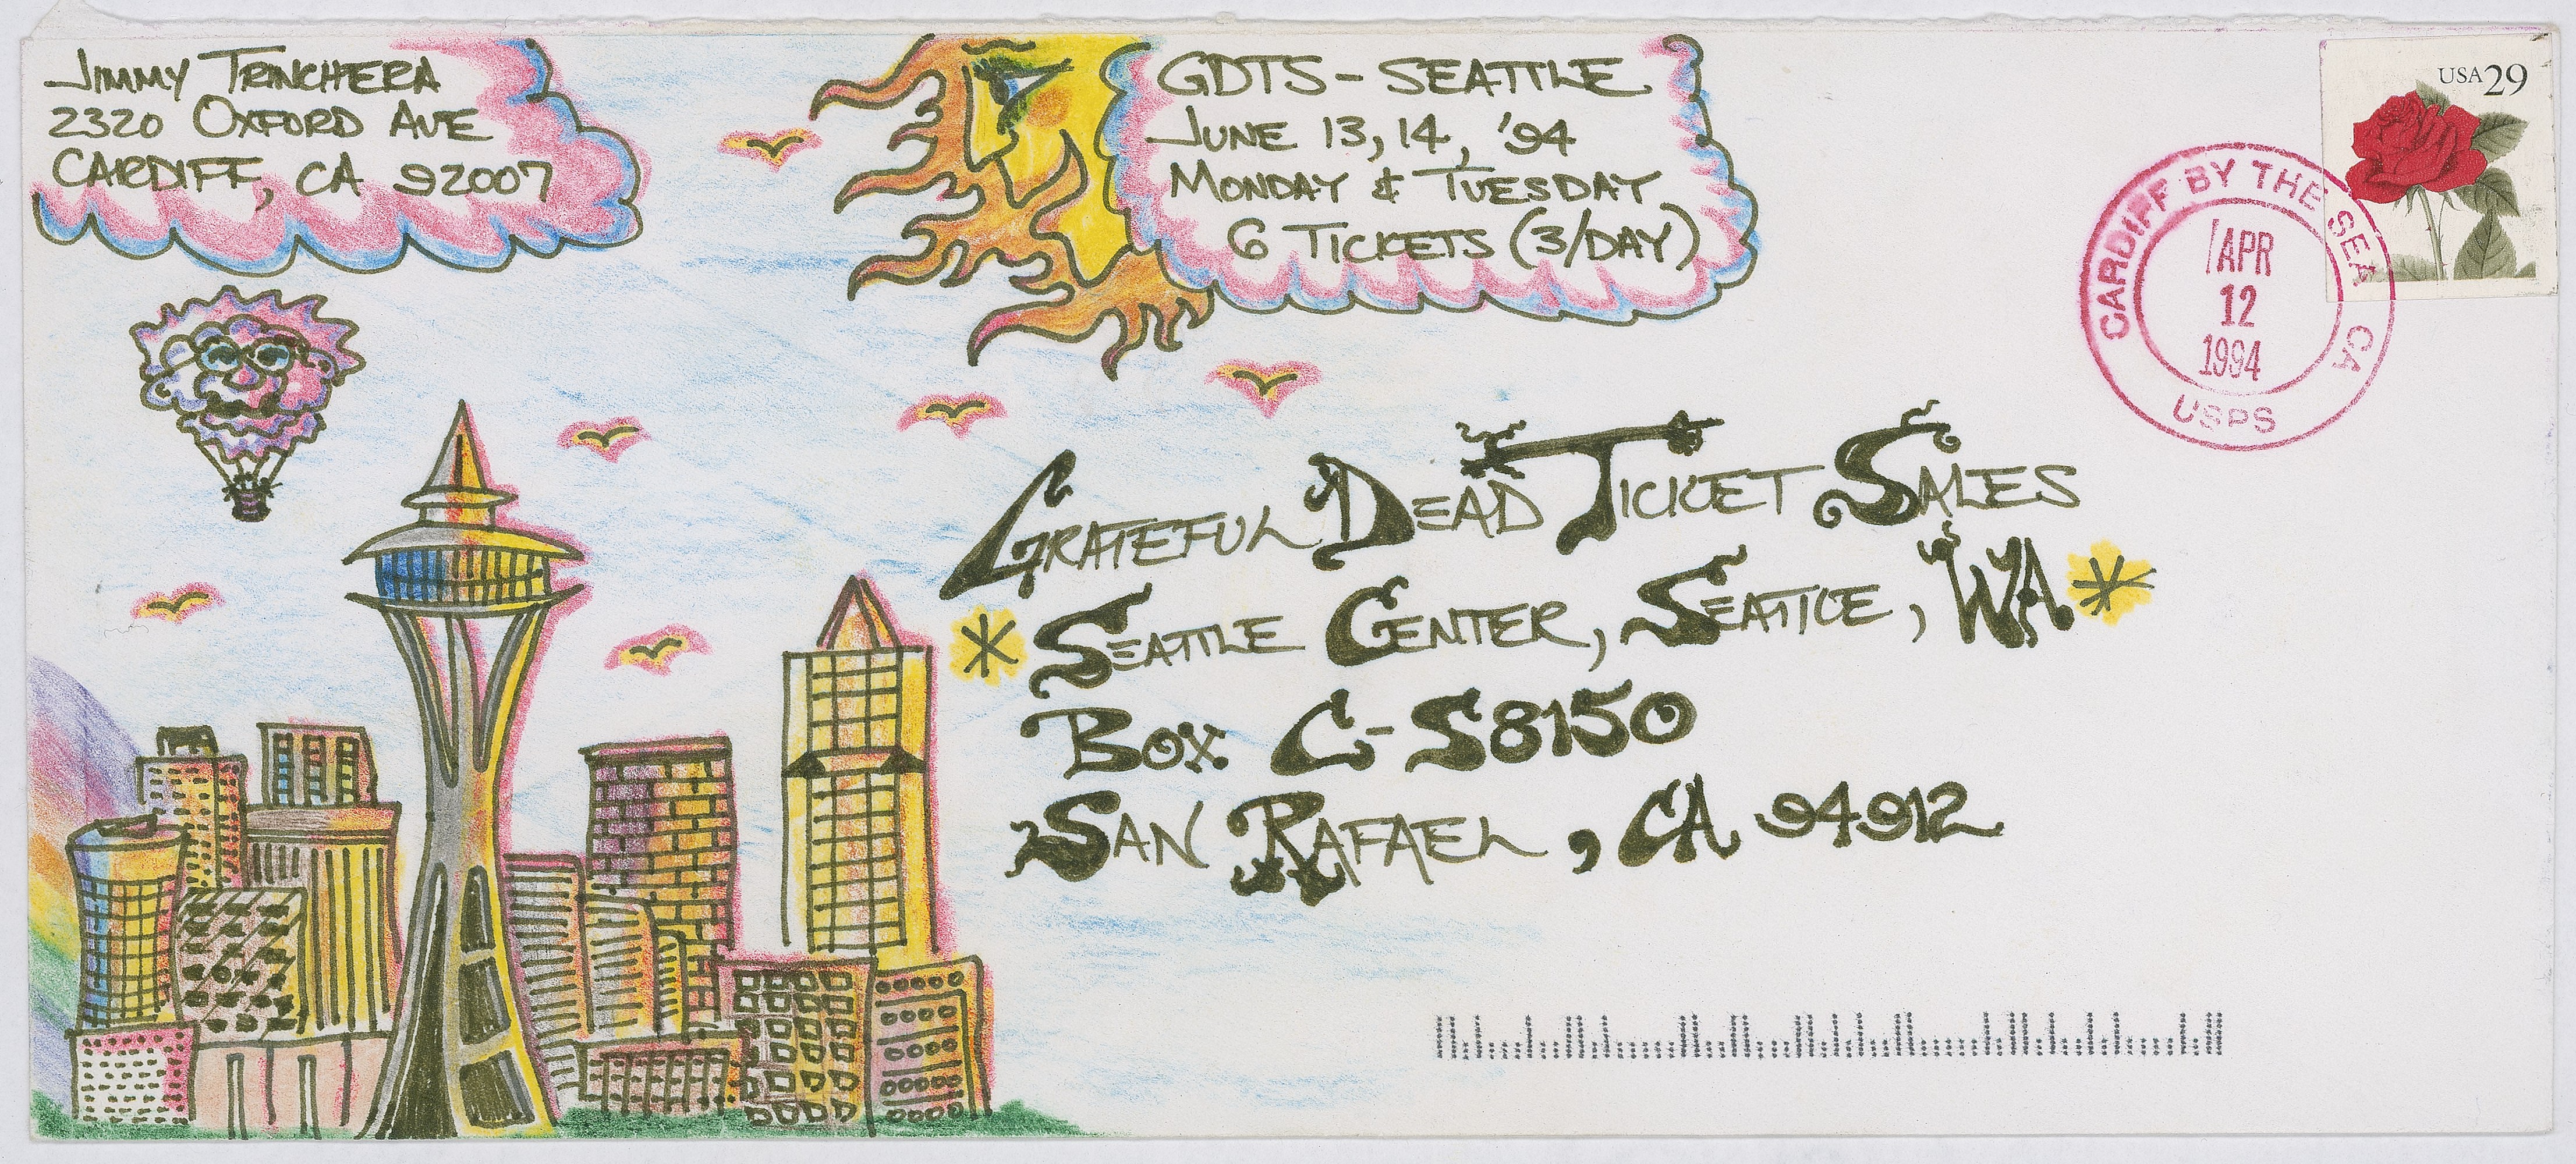 JIMMY TRINCHERA
2320 OXFORD AVE
CARDIFF, CA 92007
GDTS - SEATTLE
JUNE 13, 14, '94
MONDAY & TUESDAY
6 TICKETS (3/DAY)
USA 29
CARDIFF BY THE SEA CA
APR
12
1994
USPS
GRATEFUL DEAD TICKET SALES
* SEATTLE CENTER, SEATTLE, WA *
BOX C-S8150
SAN RAFAEL, CA 94912